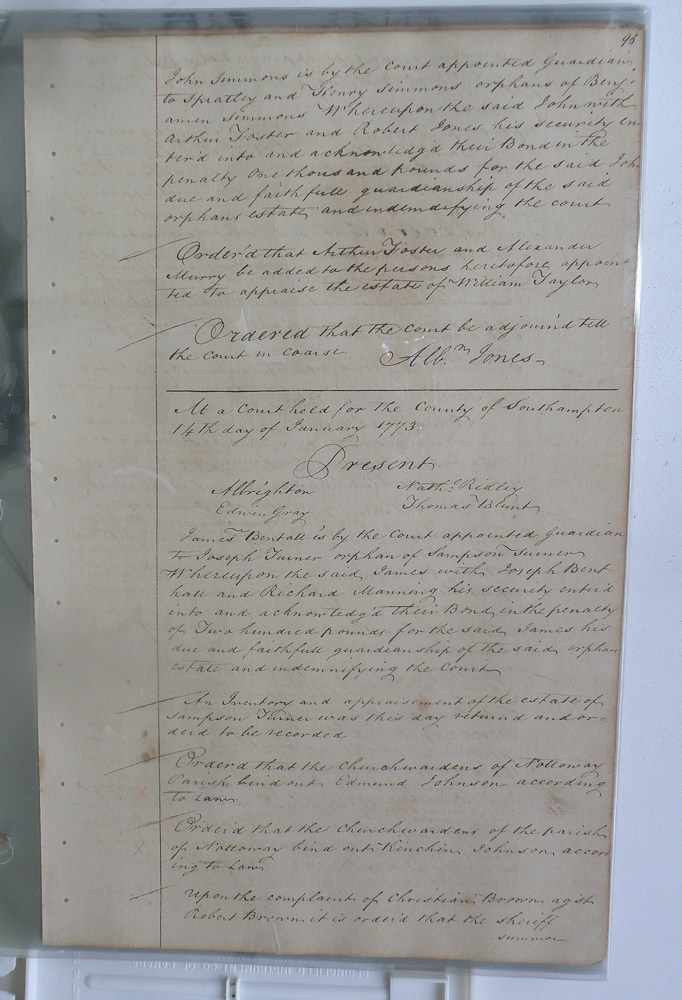 95
John Simmons is by the Court appointed Guardian
to Spratley and Henry Simmons orphans of Benj-
amin Simmons Whereupon the said John with
Arthur Foster and Robert Jones his security en
ter'd into and acknowledg'd their Bond in the
penalty One thousand pounds for the said Joh
due and faithfull guardianship of the said
orphans estate and indemdifying the court
Order'd that Arthur Foster and Alexander
Murry be added to the persons heretofore appoin=
ted to appraise the estate of William Taylor
Ordered that the Court be adjourn'd till
the Court in Coarse Alb.n Jones
At a Court held for the County of Southampton
14th day of January 1773.
Present
Albrighton Nath.l Ridley
Edwin Gray Thomas Blunt
James Bentall is by the Court appointed Guardian
to Joseph Turner orphan of Sampson Turner
Whereupon the said James with Joseph Bent
hall and Richard Manning his security enter'd
into and acknowledg'd their Bond in the penalty
of Two hundred pounds for the said James his
due and faithfull guardianship of the said orphan
estate and indemnifying the Court
An Inventory and appraisement of the estate of
Sampson Turner was this day return'd and or-
der'd to be recorded
Order'd that the Churchwardens of Nottoway
Parish bind out Edmund Johnson according
to Law
Order'd that the Churchwardens of the parish
of Nottoway bind out Kinchin Johnson accord
ing to Law
Upon the complaint of Christian Brown agst
Robert Brown it is order'd that the sheriff
summon
SPRINGFIELD INSTRUMENTS CO OF CANADA